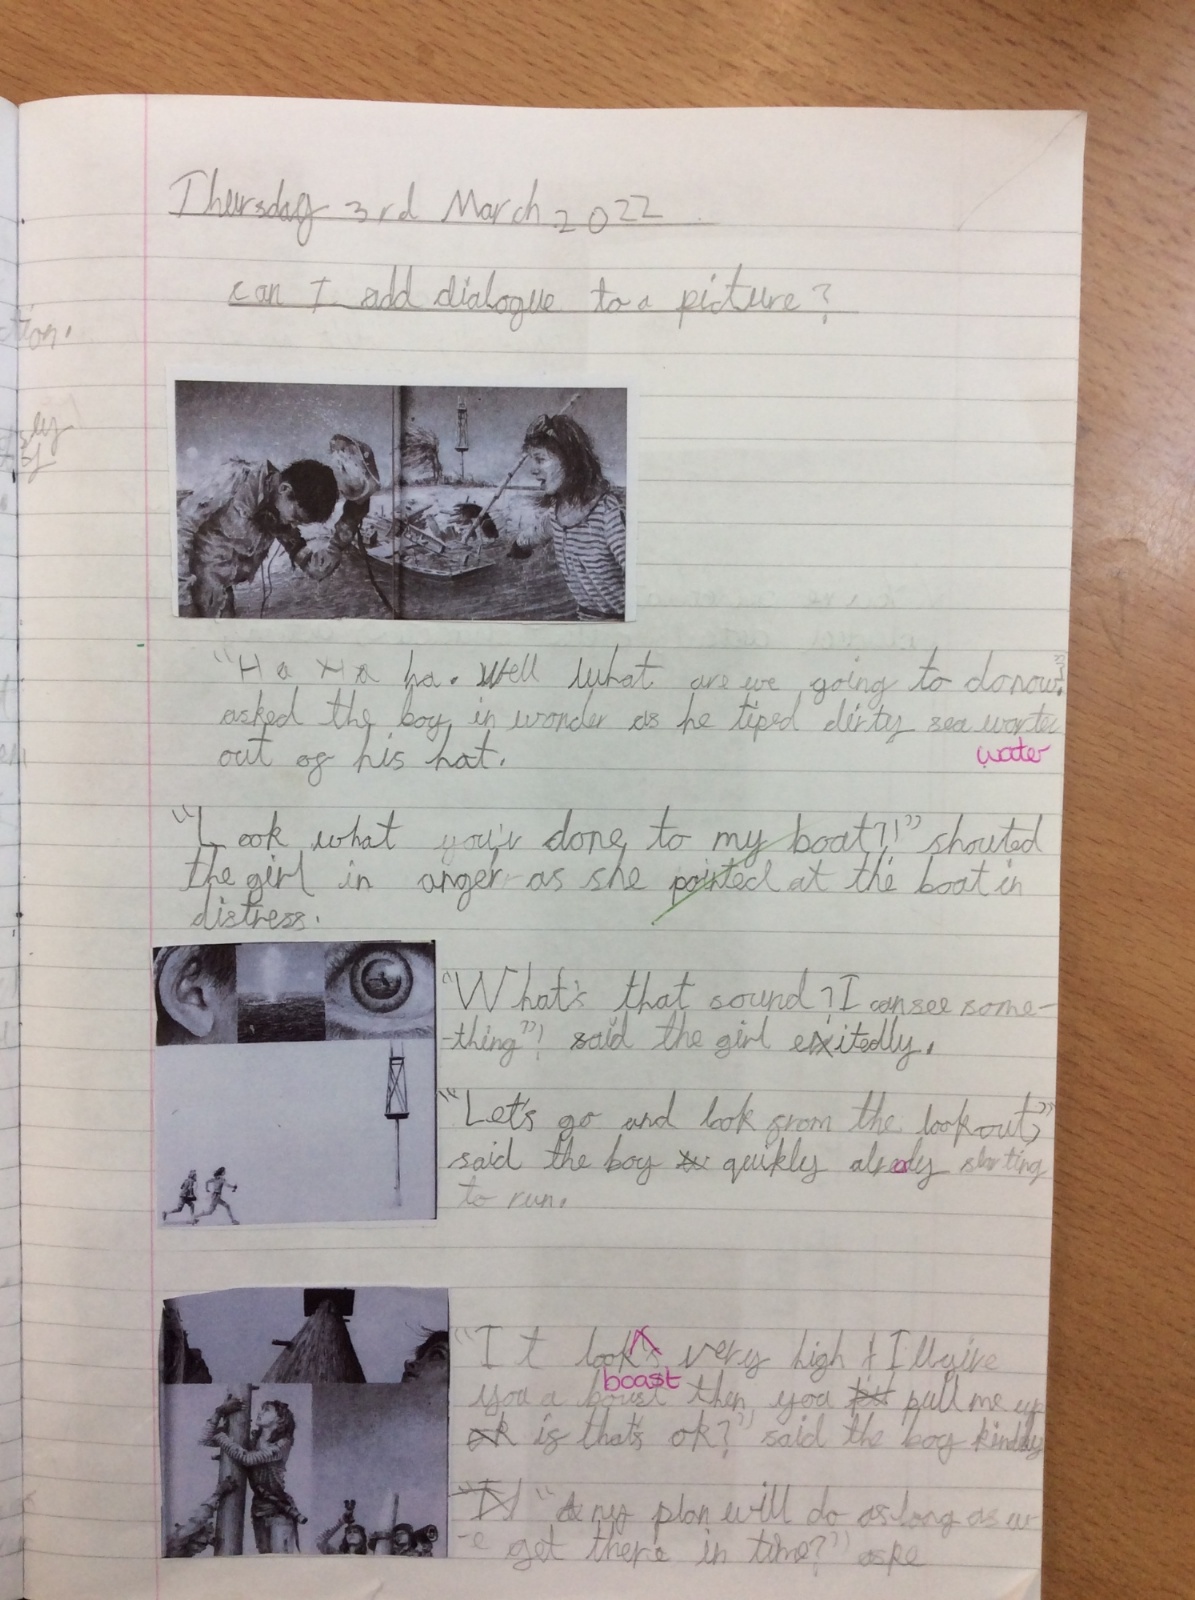 Thursday 3rd March 2022
can I add dialogue to a picture?
"Ha Ha ha. Well what are we going to do now?"
asked the boy in wonder as he tiped dirty sea worter
water
out of his hat.
"Look what you'r done to my boat?!" shouted
the girl in anger as she pointed at the boat in
distress.
"What's that sound? I can see some-
-thing"! said the girl exitedly.
"Let's go and look from the lookout,"
said the boy quikly already starting
to run.
"It look's very high & I'll give
boast
you a then you pull me up
is that's ok?" said the boy kindly
"Any plan will do as long as w-
-e get there in time?" aske